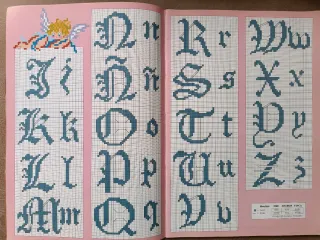 J j
K k
L l
M m
N n
Ñ ñ
O o
P p
Q q
R r
S s
T t
U u
V v
W w
X x
Y y
Z z